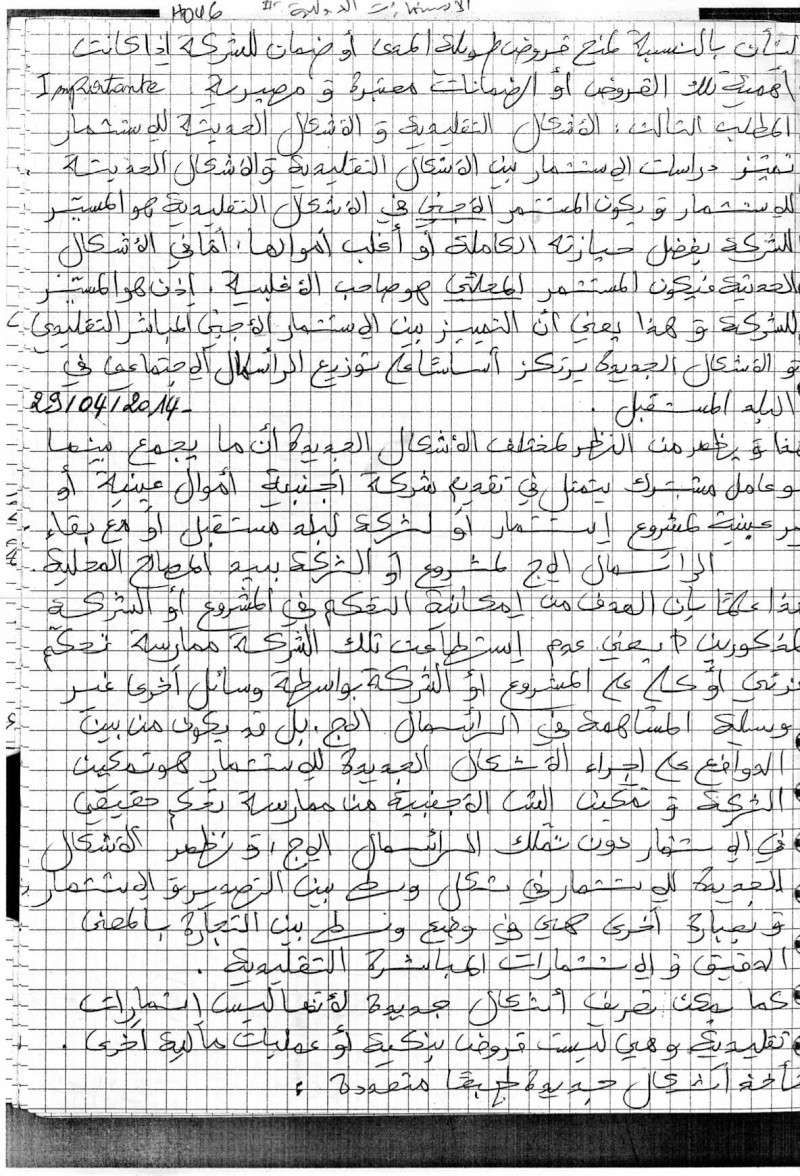 H046 الاستثمارات الدولية II
الشأن بالنسبة لمنح قروض طويلة المدى أو ضمان للشركة إذا كانت
أهمية تلك القروض أو الضمانات معتبرة و مصيرية Importante
المطلب الثالث: الأشكال التقليدية و الأشكال الحديثة للإستثمار
تميز دراسات الإستثمار بين الأشكال التقليدية و الأشكال الحديثة
للإستثمار و يكون المستثمر الأجنبي في الأشكال التقليدية هو المسير
للشركة بفضل حيازته الكاملة أو أغلب أموالها، أما في الأشكال
الحديثة فيكون المستثمر المحلي هو صاحب الأغلبية. إذن هو المسير
للشركة و هذا يعني أن التمييز بين الإستثمار الأجنبي المباشر التقليدي
و الأشكال الجديدة يرتكز أساسا على توزيع الرأسمال الإجتماعي في
البلد المستقبل. 29/04/2014-
هذا و يظهر من النظر لمختلف الأشكال الجديدة أن ما يجمع بينها
هو عامل مشترك يتمثل في تقديم شركة أجنبية أموال عينية أو
غير عينية لمشروع إستثمار أو لشركة لبلد مستقبل أو مع بقاء
الرأسمال الإج لمشروع أو الشركة بيد المصالح المحلية.
هذا علما بأن الهدف من إمكانية التحكم في المشروع أو الشركة
المذكورين لا يعني عدم إستطاعت تلك الشركة ممارسة تحكم
جزئي أو كلي على المشروع أو الشركة بواسطة وسائل أخرى غير
وسيلة المساهمة في الرأسمال الإج. بل قد يكون من بين
الدوافع على إجراء الأشكال الجديدة للإستثمار هو تمكين
الشركة و تمكين الشا الأجنبية من ممارسة تحكم حقيقي
في الإستثمار دون تملك الرأسمال الإج، و تظهر الأشكال
الجديدة للإستثمار في شكل وسط بين التصدير و الإستثمار
و بعبارة أخرى هي في وضع وسط بين التجارة بالمعنى
الدقيق و الإستثمارات المباشرة التقليدية.
كما يمكن تعريف أشكال جديدة لأنها ليس إستثمارات
تقليدية و هي ليست قروض بنكية أو عمليات مالية أخرى.
تأخذ أشكال جديدة طبقا متعددة: